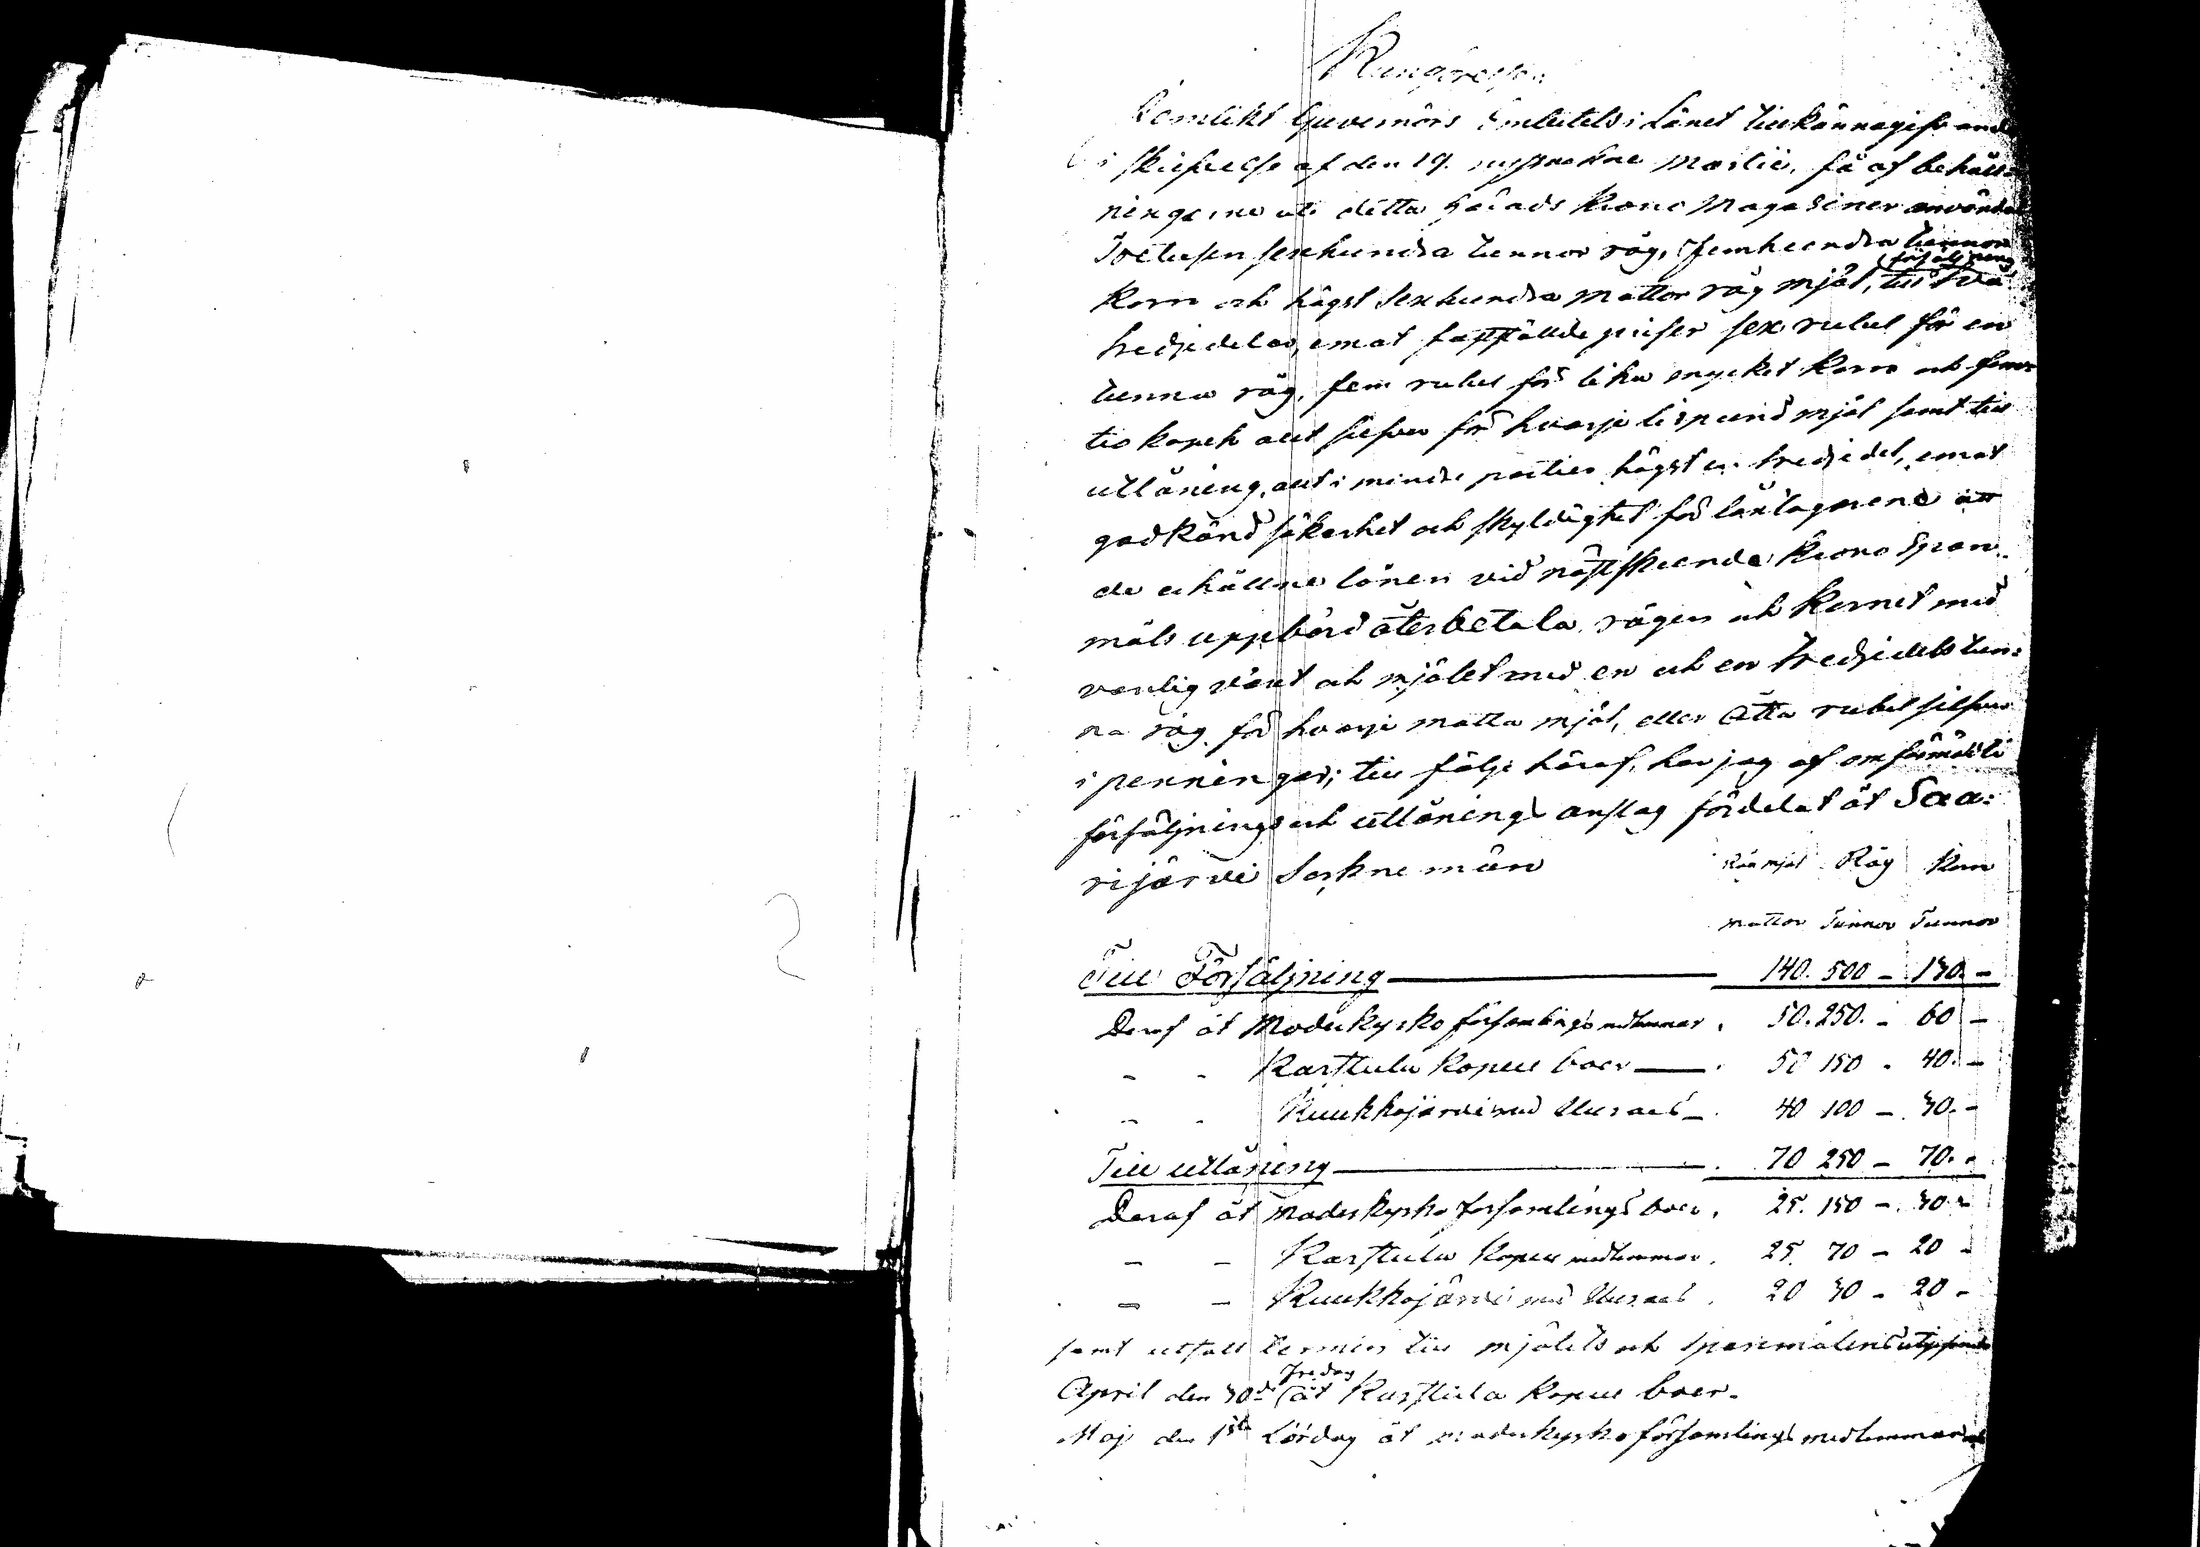 Kungörelse.
Lemlikt Guvernörs Embetets i Länet tillkännagifvande
i skrifvelse af den 19. Martii, få af behåll=
ningarne uti detta Härads Krono Magasiner användas
Tretusen sexhundra tunnor råg, femhundra tunnor
försäljning
Korn och högst sexhundra mattor råg mjöl, till två
tredjedelar, emot fastställde priser sex rubel för en
tunna råg, fem rubel för lika mycket Korn och femt=
tio kopek allt silfver för hvarje lispund mjöl samt till
utlåning, allt i mindre partier högst en tredjedel, emot
godkänd säkerhet och skyldighet för låntagarene att
de erhållne lånen vid nästskeende Krono Span=
måls uppbörd återbetala, rågen och Kornet med
vanlig växt och mjölet med en och en tredjedels tun=
na råg för hvarje matta mjöl, eller Åtta rubel silfver
i penningar; till följe häraf, har jag af omförmälte
försäljnings och utlånings anslag fördelat åt Saa=
rijärvi Sockne män
Råg mjöl Råg Korn
mattor Tunnor Tunnor
Till Försäljning — 140. 500 – 130. –
Deraf åt Moderkyrko församlings medlemmar . 50. 250. – 60 –
– – Karstula Kapell boer — . 50 150 – 40. –
– – Kuukkajärvi med Uurael – . 40 100 – 30. –
Till utlåning — . 70 250 – 70. –
Deraf åt moderkyrko församlings boer . 25. 150 – 30 –
– – Karstula Kapell medlemmar . 25. 70 – 20 –
– – Kuukkajärvi med Uurael . 20 30 – 20 –
samt utsatt termin till mjölets och spanmålens
Fredag
April den 30de åt Karstula Kapell boer.
Maj den 1sta Lördag åt moderkyrko församlings medlemmar